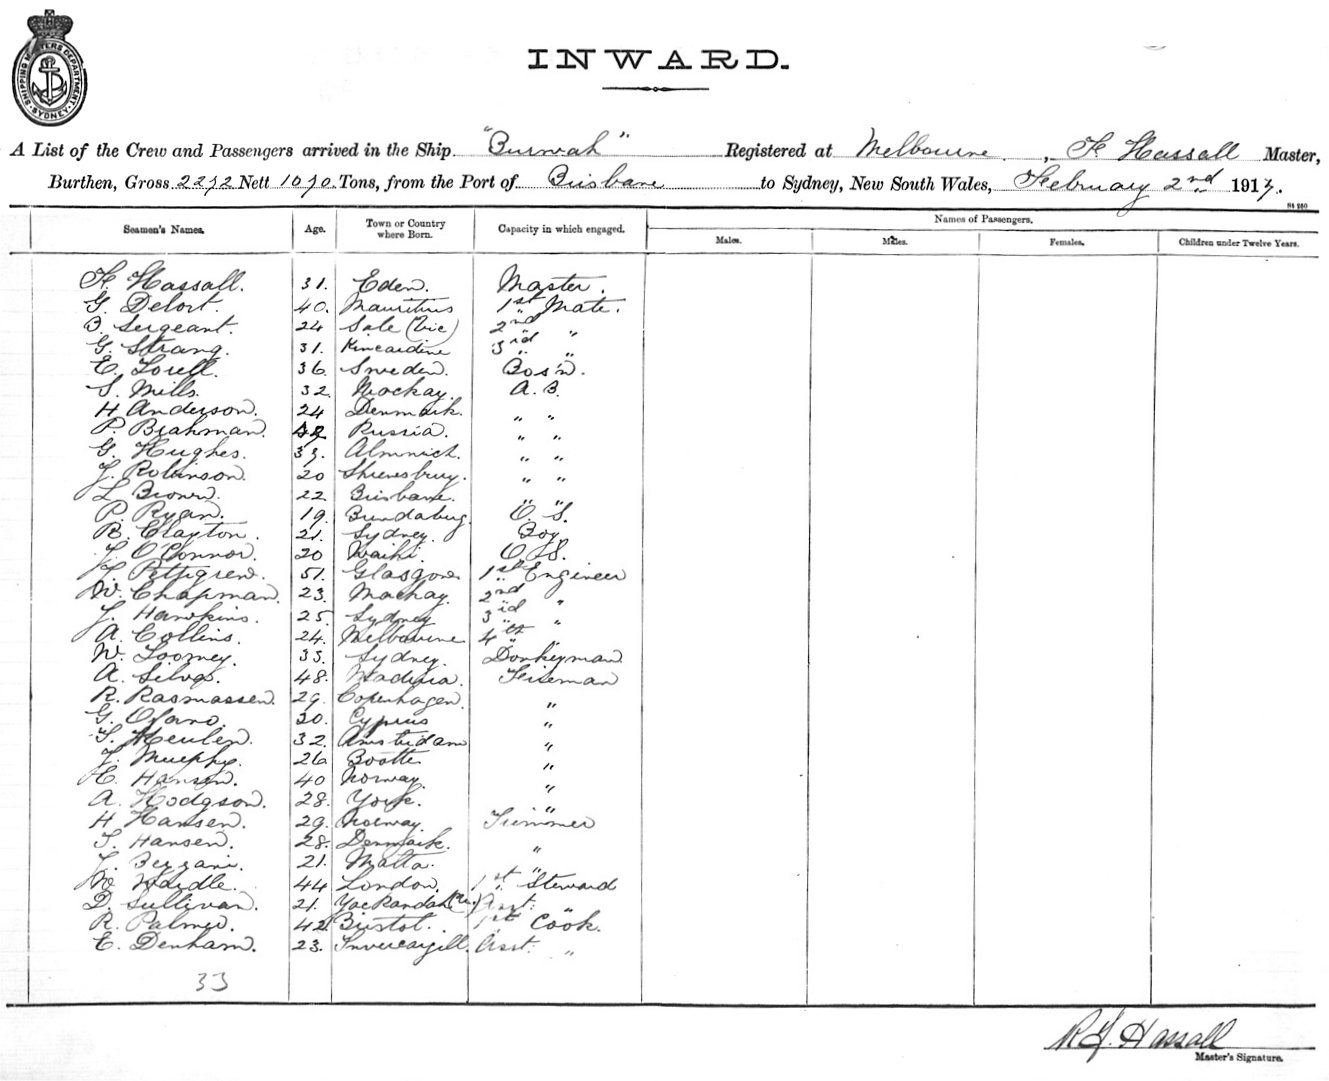 SHIPPING MASTERS DEPARTMENT · SYDNEY ·
INWARD.
A List of the Crew and Passengers arrived in the Ship "Burwah" Registered at Melbourne, F. Hassall Master,
Burthen, Gross 2272 Nett 1070 Tons, from the Port of Brisbane to Sydney, New South Wales, February 2nd 1917.
Seamen's Names. Age. Town or Country where Born. Capacity in which engaged. Names of Passengers.
Males. Males. Females. Children under Twelve Years.
F. Hassall. 31. Eden. Master.
G. Delort. 40. Mauritius 1st Mate.
B. Sergeant. 24 Sale (Vic) 2nd "
G. Strang. 31. Kincardine 3rd "
E. Lorell. 36 Sweden. Bos'n.
S. Mills. 32 Mackay. A.B.
H. Anderson. 24 Denmark. " "
P. Brahman. Russia. " "
G. Hughes. 33. " "
J. Robinson. 20 Shrewsbury. " "
L. Brown. 22 Brisbane. " "
P. Ryan. 19. Bundaburg. O.S.
B. Clayton. 21. Sydney. Boy
J. O'Connor. 20 Waihi. O.S.
J. Pettigrew. 51. Glasgow 1st Engineer
W. Chapman. 23. Mackay. 2nd "
J. Hawkins. 25. Sydney 3rd "
A. Collins. 24. Melbourne 4th "
W. Toomey. 33. Sydney. Donkeyman
A. Silva. 48. Madeira. Fireman
R. Rasmassen. 29. Copenhagen. "
G. Ofano. 30. Cyprus "
T. Meulen. 32. Amsterdam "
J. Murphy. 26. Bootle "
C. Hansen. 40 Norway. "
A. Hodgson. 28. York. "
H. Hansen. 29. Norway. Trimmer
T. Hansen. 28. Denmark. "
J. Bezzani. 21. Malta. "
W. Wardle. 44 London. 1st Steward
D. Sullivan. 21. Yackandah (Vic.) Asst. "
R. Palmer. 42 Bristol. 1st Cook.
E. Denham. 23. Invercargill. Asst. "
33
R F. Hassall
Master's Signature.